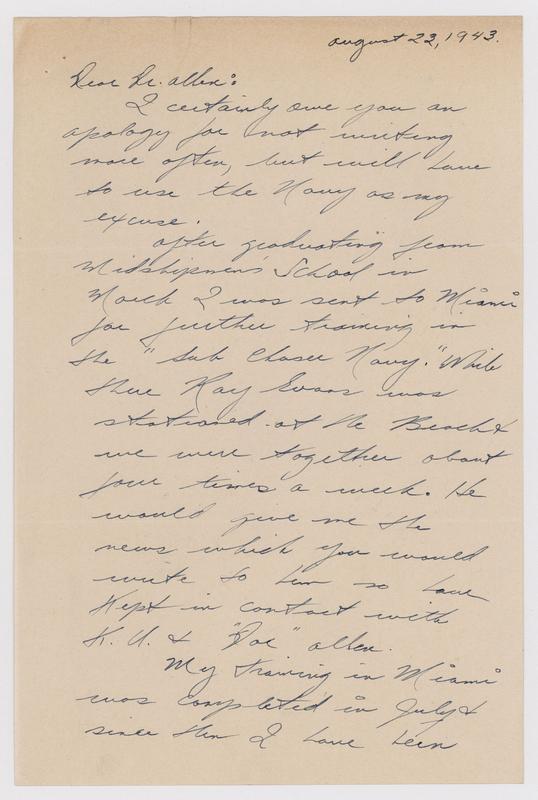 August 23, 1943.
Dear Dr. Allen:
I certainly owe you an
apology for not writing
more often, but will have
to use the Navy as my
excuse.
After graduating from
Midshipmen's School in
March I was sent to Miami
for further training in
the "Sub Chaser Navy." While
there Ray Evans was
stationed at the Beach &
we were together about
four times a week. He
would give me the
news which you would
write to him so have
kept in contact with
K. U. & "Doc" Allen.
My training in Miami
was completed in July &
since then I have been